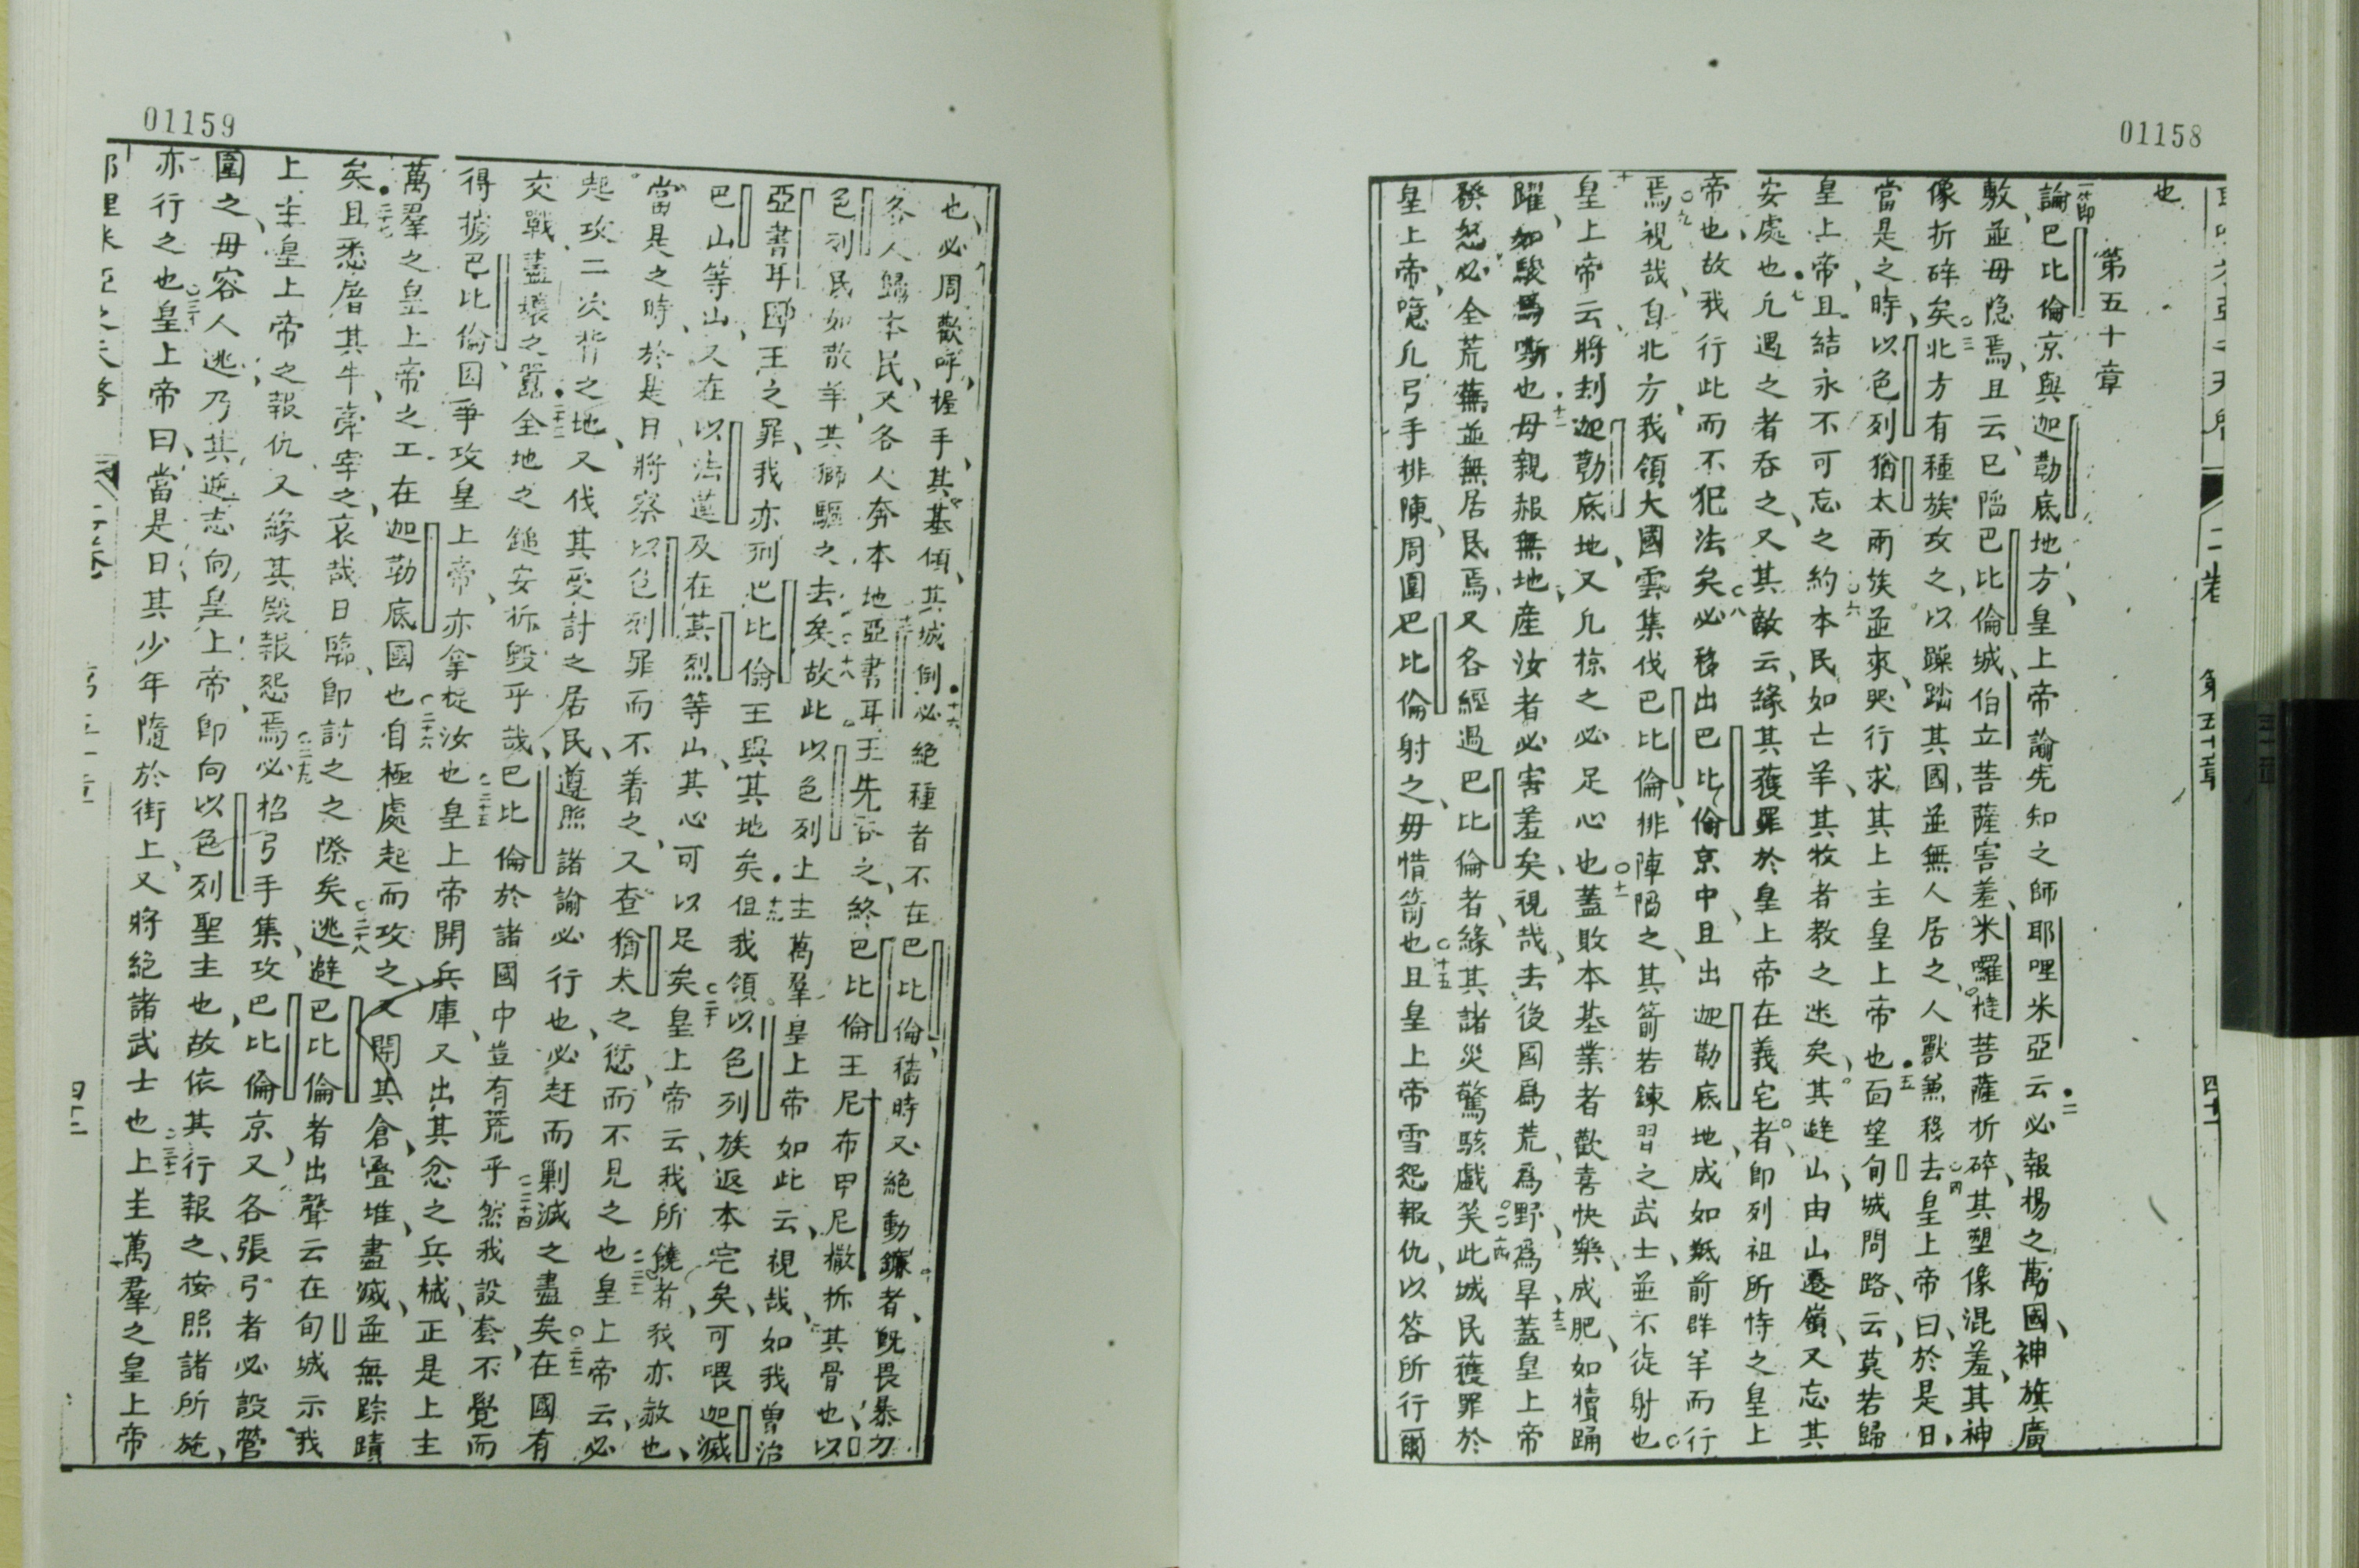 01158
也
第五十章
一節論巴比倫京與迦勒底地方、皇上帝諭先知之師耶哩米亞云必報楊之萬國、神旗廣
敷、並毋隐焉、且云、已陷巴比倫城、伯立菩薩害羞、米囉㯖菩薩折碎、其塑像混羞、其神
像折碎矣北方有種族攻之、以躁踏其國、並無人居之、人獸兼移去皇上帝曰、於是日、
當是之時、以色列猶太兩族並來、哭行求其上主皇上帝也面望旬城問路、云、莫若歸
皇上帝、且結永不可忘之約本民如亡羊、其牧者教之迷矣、其避山、由山遷嶺、又忘其
安處也凢遇之者吞之、又其敵云、緣其獲罪於皇上帝在義宅者、即列祖所恃之皇上
帝也、故我行此而不犯法矣必移出巴比倫京中、且出迦勒底地、成如羝前群羊而行
焉視哉、自北方、我領大國雲集伐巴比倫、排陣陷之、其箭若鍊習之武士、並不徒射也
皇上帝云、將刦迦勒底地、又凢掠之必足心也蓋敗本基業者歡喜快樂、成肥、如犢踊
躍、如駿馬嘶也母親赧無地、產汝者必害羞矣、視哉、去後國為荒、為野、為旱蓋皇上帝
發怒必全荒蕪並無居民焉、又各經過巴比倫者、緣其諸災驚駭戲笑此城民獲罪於
皇上帝、噫凢弓手排陳、周圍巴比倫射之、毋惜箭也且皇上帝雪怨報仇、以答所行爾
二卷
第五十章
四十一
01159
也、必周歡呼、握手、其基傾、其城倒必絕種者不在巴比倫、穡時又絕動鐮者、既畏暴刀
各人歸本民、又各人奔本地亞書耳王先吞之、終巴比倫王尼布甲尼撒拆其骨也、以
色列民如散羊、其獅驅之去矣故此以色列上主萬羣皇上帝如此云、視哉、如我曾治
亞書耳國王之罪、我亦刑巴比倫王與其地矣但我領以色列族返本宅矣、可喂迦滅
巴山等山、又在以法蓮及在其烈等山、其心可以足矣皇上帝云、我所饒者、我亦赦也、
當是之時、於是日、將察以色列罪而不着之、又查猶太之愆、而不見之也皇上帝云、必
起攻二次背之地、又伐其受討之居民、遵照諸諭必行也、必赶而剿滅之盡矣在國有
交戰、盡壞之嚣全地之鎚安折毀乎哉、巴比倫於諸國中豈有荒乎然我設套、不覺而
得據巴比倫、因爭攻皇上帝、亦拿捉汝也皇上帝開兵庫、又出其忿之兵械、正是上主
萬羣之皇上帝之工、在迦勒底國也自極處起而攻之、又開其倉、疊堆、盡滅、並無踪蹟
矣且悉屠其牛、牽宰之、哀哉日臨、即討之之際矣逃避巴比倫者、出聲云在旬城示我
上主皇上帝之報仇、又緣其殿報怨焉必招弓手集、攻巴比倫京、又各張弓者必設營
圍之、毋容人逃、乃其逆志向皇上帝、即向以色列聖主也、故依其行報之、按照諸所施、
亦行之也皇上帝曰、當是日、其少年隨於街上、又將絕諸武士也上主萬羣之皇上帝